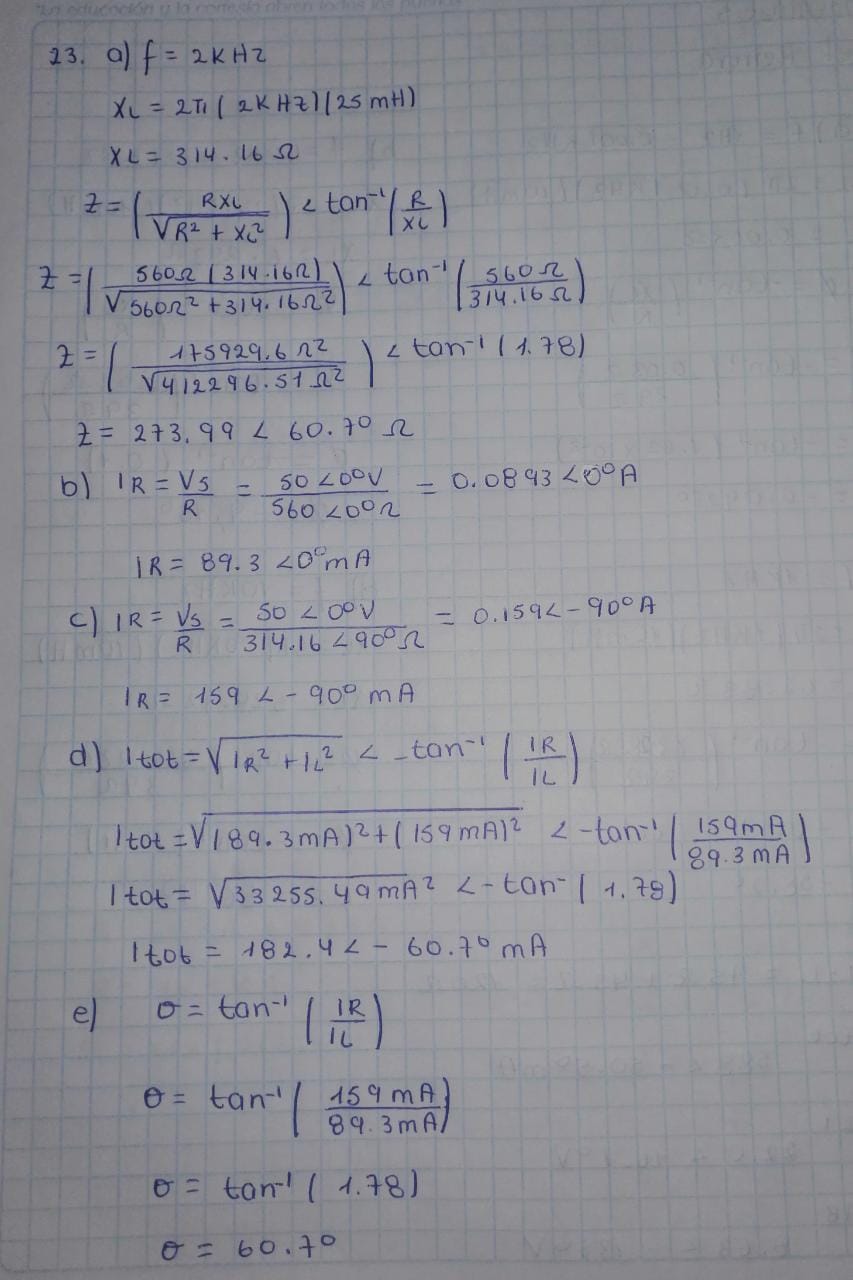 "La educación y la cortesía abren todas las puertas
23. a) f = 2KHZ
XL = 2π(2KHZ)(25mH)
XL = 314.16 Ω
Z = (RXL / √R² + XL²) < tan⁻¹(R / XL)
Z = (560Ω(314.16Ω) / √560Ω² + 314.16Ω²) < tan⁻¹(560Ω / 314.16Ω)
Z = (175929.6Ω² / √412296.51Ω²) < tan⁻¹(1.78)
Z = 273.99 < 60.7° Ω
b) IR = VS/R = 50<0°V / 560<0°Ω = 0.0893<0°A
IR = 89.3 <0°mA
c) IR = VS/R = 50<0°V / 314.16<90°Ω = 0.159<-90°A
IR = 159 < -90° mA
d) Itot = √IR² + IL² < -tan⁻¹(IR / IL)
Itot = √(89.3mA)² + (159mA)² < -tan⁻¹(159mA / 89.3mA)
Itot = √33255.49mA² < -tan⁻(1.78)
Itot = 182.4 < -60.7° mA
e) θ = tan⁻¹(IR / IL)
θ = tan⁻¹(159mA / 89.3mA)
θ = tan⁻¹(1.78)
θ = 60.7°